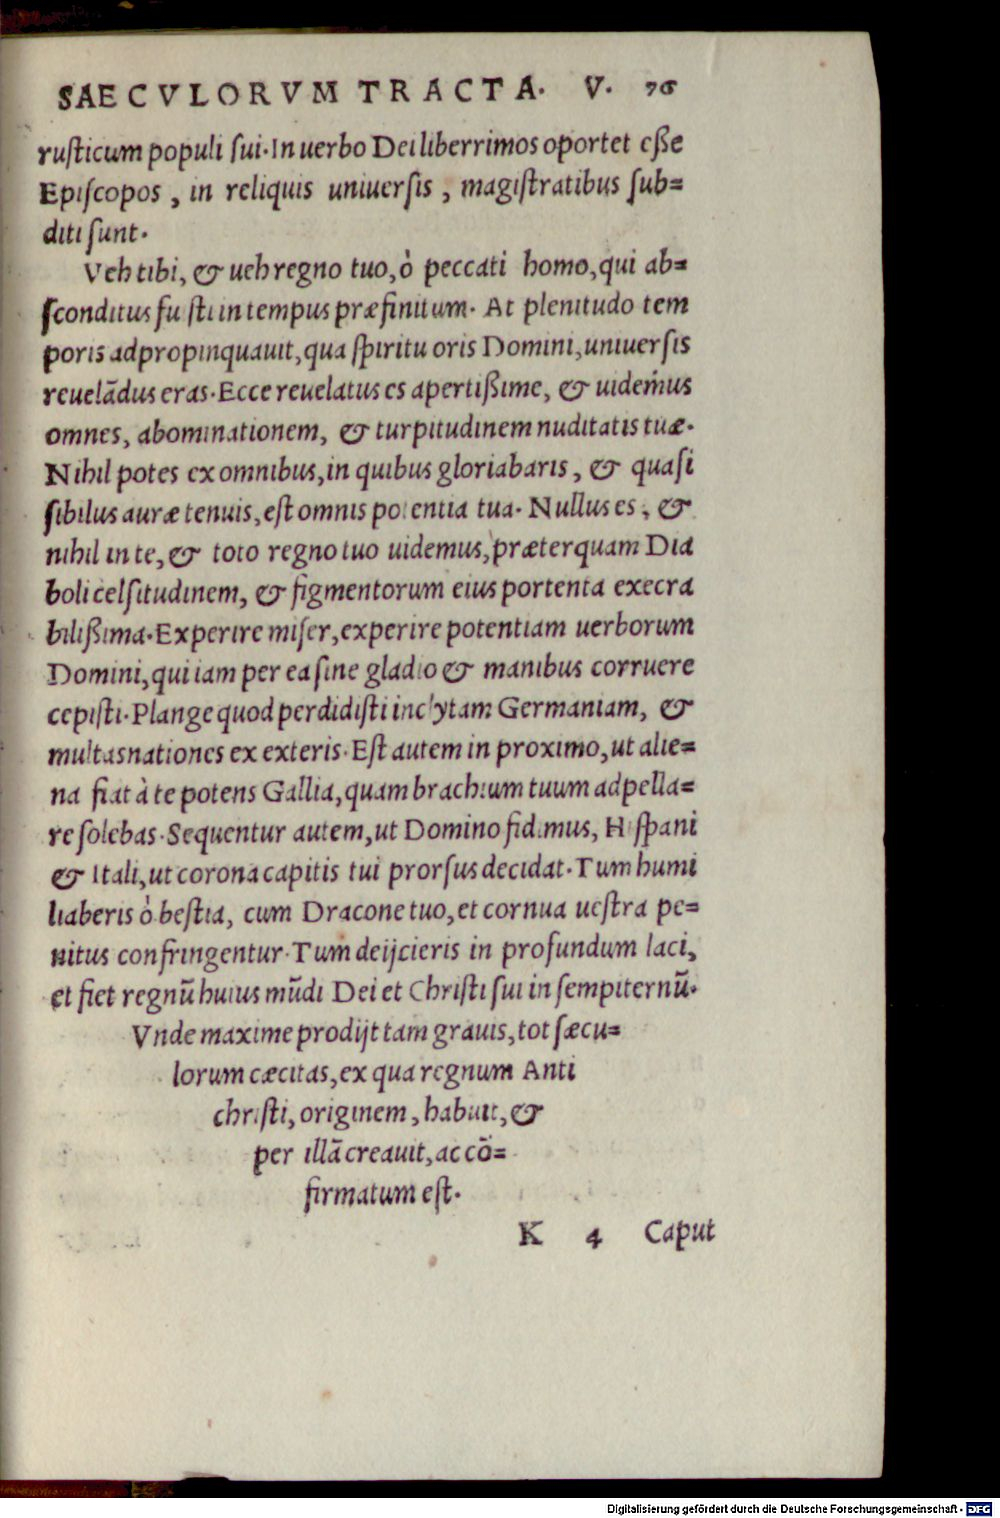 SAECVLORVM TRACTA. V. 76
rusticum populi sui. In uerbo Dei liberrimos oportet eße
Episcopos, in reliquis uniuersis, magistratibus sub=
diti sunt.
Veh tibi, & ueh regno tuo, ò peccati homo, qui ab=
sconditus fu sti in tempus præfinitum. At plenitudo tem
poris adpropinquauit, qua spiritu oris Domini, uniuersis
reuelādus eras. Ecce reuelatus es apertißime, & uidemus
omnes, abominationem, & turpitudinem nuditatis tuæ.
Nihil potes ex omnibus, in quibus gloriabaris, & quasi
sibilus auræ tenuis, est omnis potentia tua. Nullus es, &
nihil in te, & toto regno tuo uidemus, præterquam Dia
boli celsitudinem, & figmentorum eius portenta execra
bilißima. Experire miser, experire potentiam uerborum
Domini, qui iam per ea sine gladio & manibus corruere
cepisti. Plange quod perdidisti inclytam Germaniam, &
multas nationes ex exteris. Est autem in proximo, ut alie=
na fiat à te potens Gallia, quam brachium tuum adpella=
re solebas. Sequentur autem, ut Domino fidimus, Hispani
& Itali, ut corona capitis tui prorsus decidat. Tum humi
liaberis ò bestia, cum Dracone tuo, et cornua uestra pe=
nitus confringentur. Tum deijcieris in profundum laci,
et fiet regnū huius mūdi Dei et Christi sui in sempiternū.
Vnde maxime prodijt tam grauis, tot sæcu=
lorum cæcitas, ex qua regnum Anti
christi, originem, habuit, &
per illā creauit, ac cō=
firmatum est.
K 4 Caput
Digitalisierung gefördert durch die Deutsche Forschungsgemeinschaft - DFG